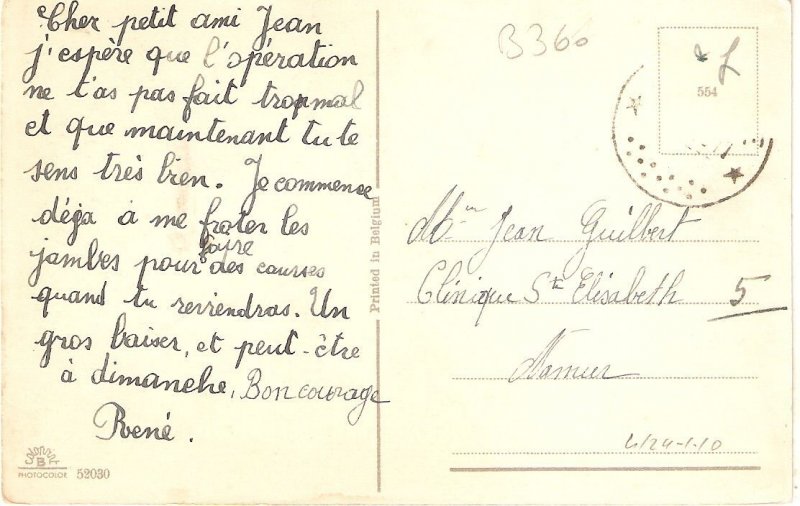 Cher petit ami Jean
j'espère que l'opération
ne t'as pas fait trop mal
et que maintenant tu te
sens très bien. Je commence
déja à me froter les
jambes pour faire des courses
quand tu reviendras. Un
gros baiser, et peut-être
à dimanche, Bon courage
René.
COLORPRINT
B
PHOTOCOLOR 52030
Printed in Belgium
B360
554
Jean Guilbert
Clinique Ste Elisabeth 5
Namur